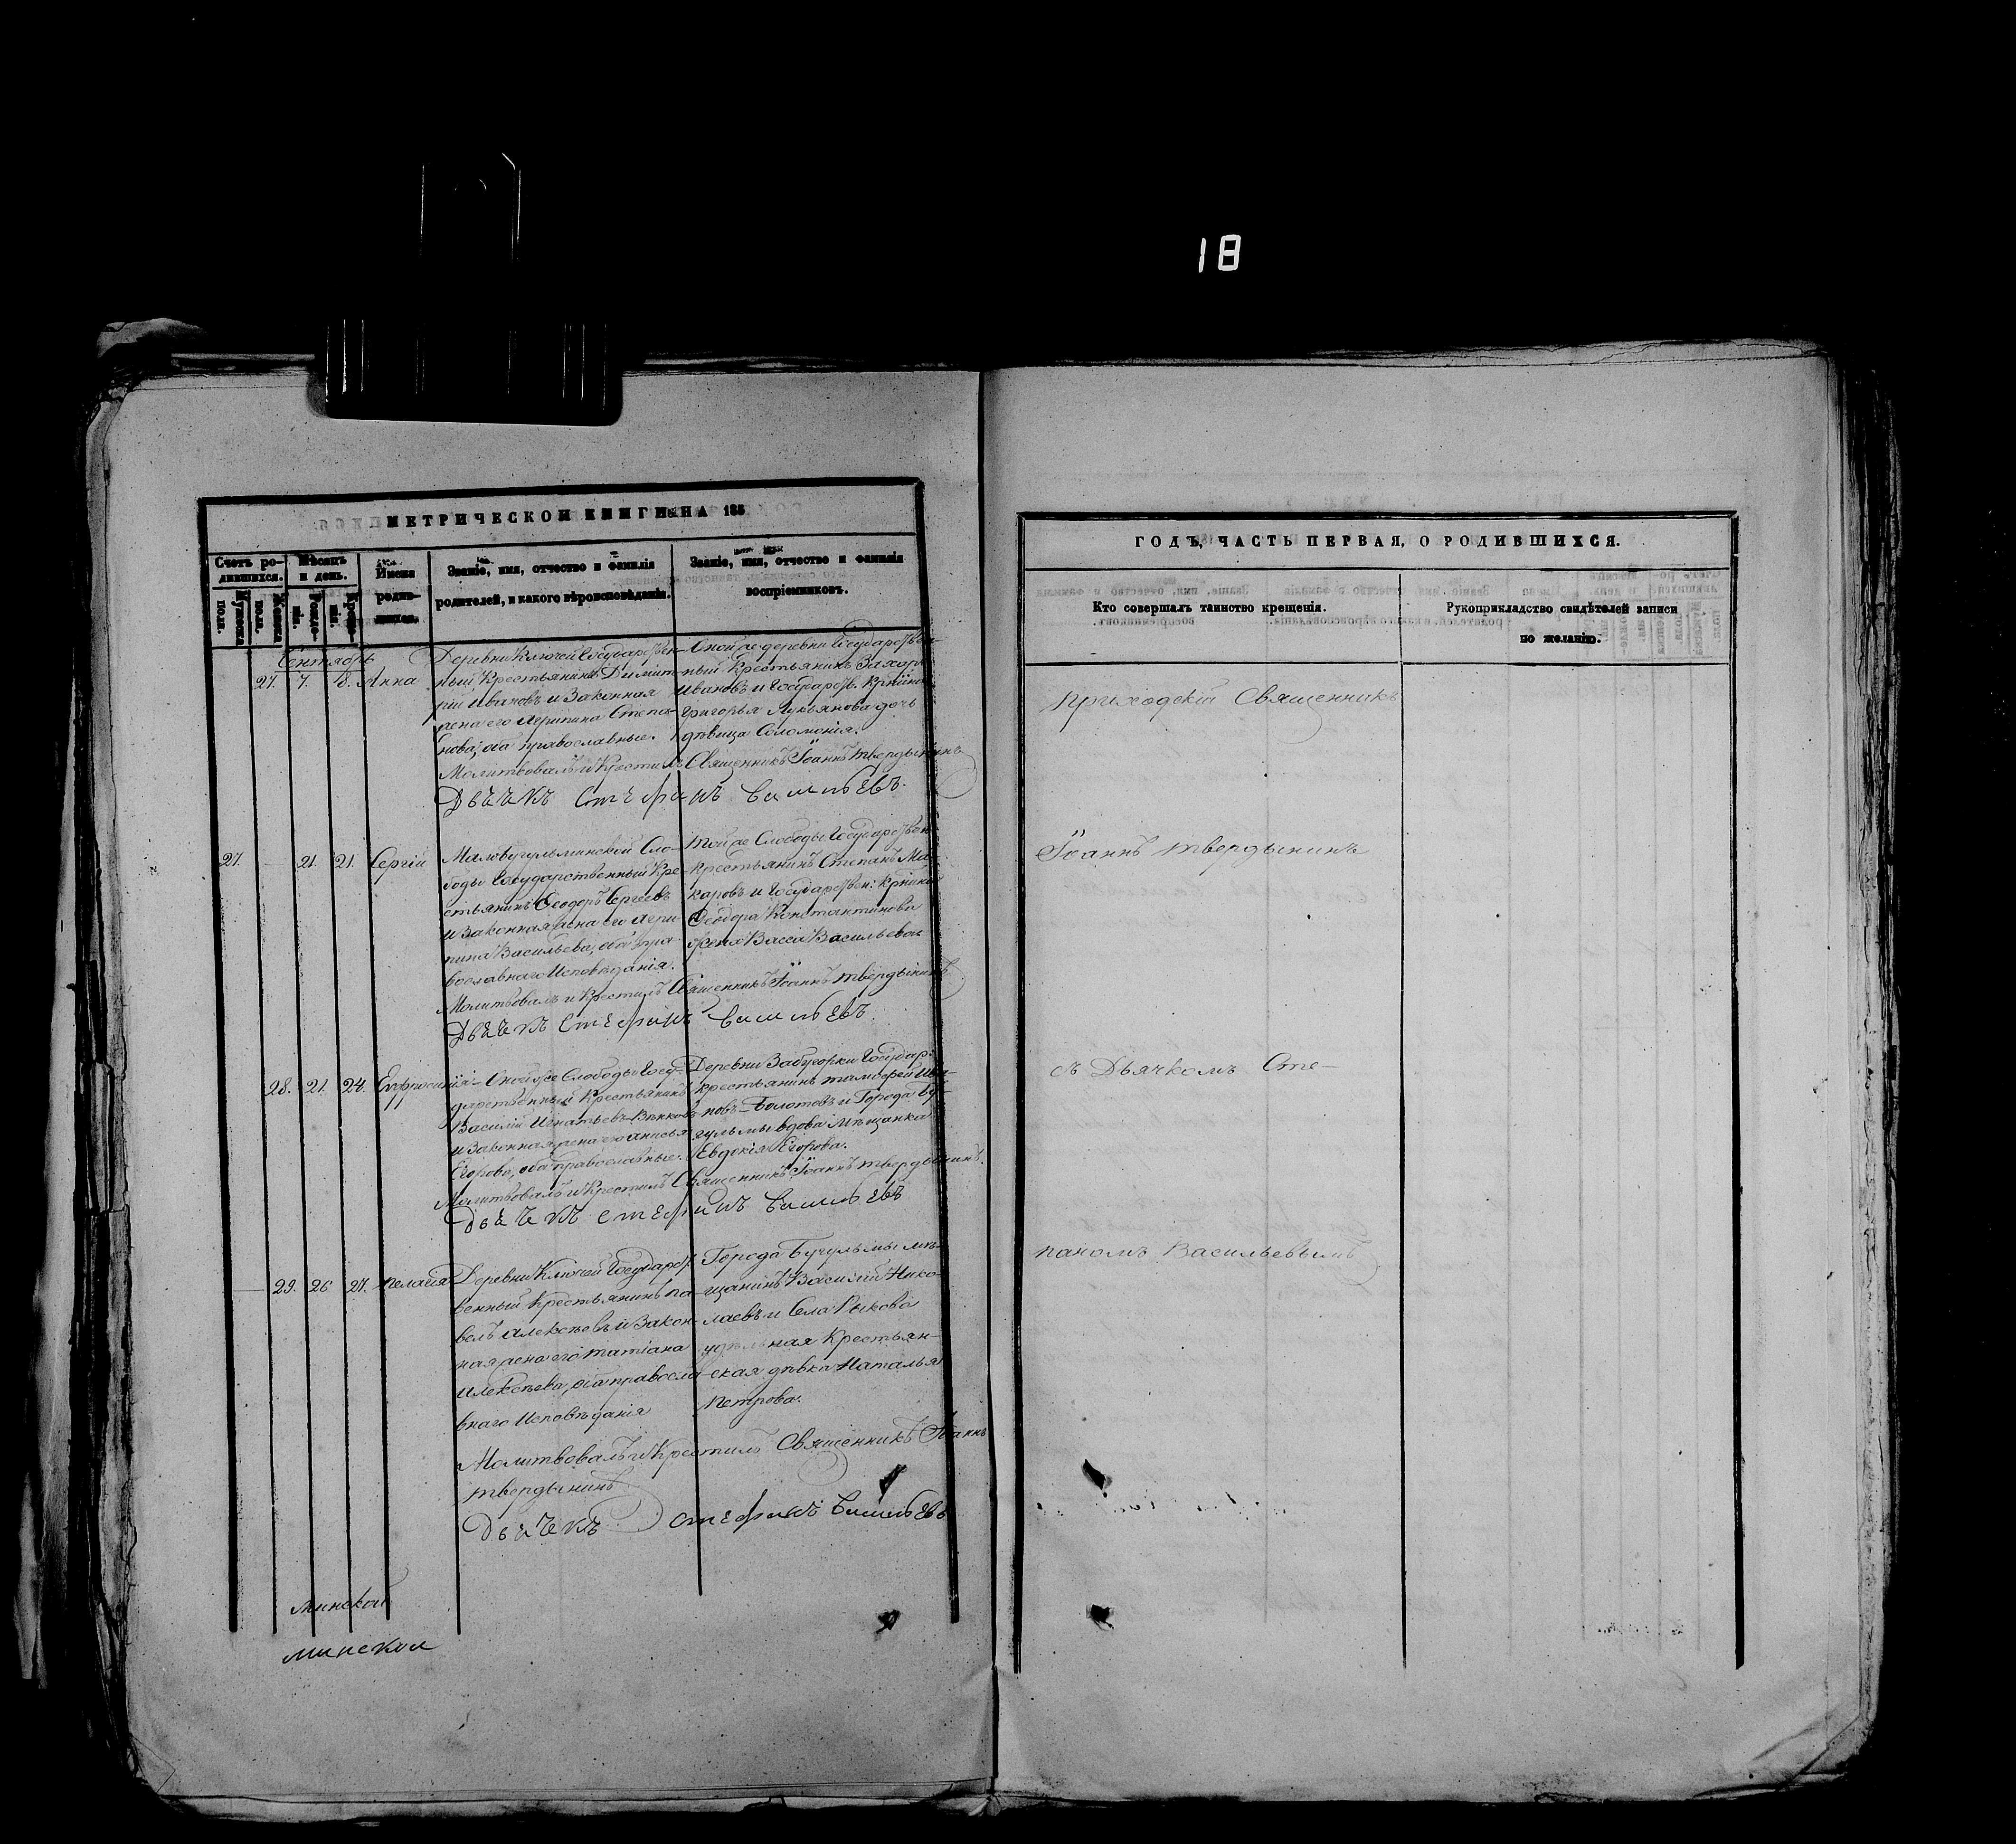 18
МЕТРИЧЕСКОЙ КНИГИ НА 185
Счетъ ро-
дившихся.
Мужеска
пола.
Женска
пола.
Мѣсяцъ
и день.
Рожде-
нія.
Креще-
нія.
Имена
родив-
шихся.
Званіе, имя, отчество и фамилія
родителей, и какого вѣроисповѣданія.
Званіе, имя, отчество и фамилія
воспріемниковъ.
Сентябрь
27. 7. 8. Анна
Деревни Ключей Государствен-
ный Крестьянинъ Димит-
рій Ивановъ и Законная
жена его Агрипина Степа-
нова, оба православные.
Оной же деревни Государствен
ный Крестьянинъ Захаръ
Ивановъ и Государств. Крнина
Григорья Лукьянова дочь
дѣвица Соломонія.
Молитвовалъ и Крестилъ Священникъ Іоаннъ Твердынинъ
Дьячекъ Стефанъ Васильевъ.
27. 21. 21. Сергій
Малобугульминской Сло-
боды Государственный Кре-
стьянинъ Ѳеодоръ Сергѣевъ
и Законная жена его Агри-
пина Васильева, оба пра-
вославнаго Исповѣданія.
Той же Слободы Государствен
Крестьянинъ Степанъ Ма-
каровъ и Государствен: Крнина
Ѳеодора Константинова
жена Васса Васильева
Молитвовалъ и Крестилъ Священникъ Іоаннъ Твердынинъ
Дьячекъ Стефанъ Васильевъ.
28. 21. 24. Евфросинія
Оной же Слободы Госу-
дарственный Крестьянинъ
Василій Игнатьевъ
и Законная жена его Анисья
Егорова, оба православные.
Деревни Забугорки Государ:
крестьянинъ Тимофей Ива-
новъ Болотовъ и Города Бу-
гульмы вдова мѣщанка
Евдокія Егорова.
Молитвовалъ и Крестилъ Священникъ Іоаннъ Твердынинъ.
Дьячекъ Стефанъ Васильевъ
29. 26 27. Пелагія
Деревни Ключей Государст:
венный Крестьянинъ Па-
велъ Алексѣевъ и Закон-
ная жена его Татіана
Алексѣева, оба правосла-
внаго Исповѣданія
Города Бугульмы мѣ-
щанинъ Василій Нико-
лаевъ и Села Рыкова
удѣльная Крестьян-
ская дѣвка Наталья
Петрова.
Молитвовалъ и Крестилъ Священникъ Іоаннъ
Твердынинъ
Дьячекъ Стефанъ Васильевъ
минской
минской
ГОДЪ, ЧАСТЬ ПЕРВАЯ, О РОДИВШИХСЯ.
Кто совершалъ таинство крещенія.
Рукоприкладство свидѣтелей записи
по желанію.
Приходскій Священникъ
Іоаннъ Твердынинъ
съ Дьячкомъ Сте-
паномъ Васильевымъ